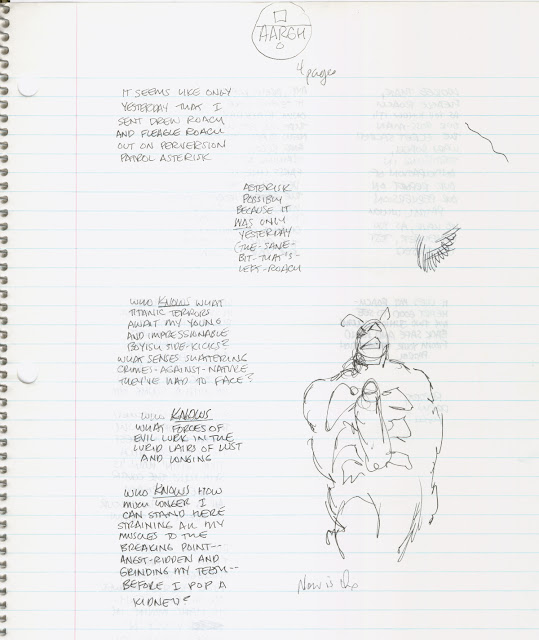 AARGH
4 pages
IT SEEMS LIKE ONLY
YESTERDAY THAT I
SENT DREW ROACH
AND FLEAGLE ROACH
OUT ON PERVERSION
PATROL ASTERISK
ASTERISK
POSSIBLY
BECAUSE IT
WAS ONLY
YESTERDAY
(THE-SANE-
BIT-THAT'S-
LEFT-ROACH
WHO KNOWS WHAT
TITANIC TERRORS
AWAIT MY YOUNG
AND IMPRESSIONABLE
BOYISH SIDE-KICKS?
WHAT SENSES SHATTERING
CRIMES-AGAINST-NATURE
THEY'VE HAD TO FACE?
WHO KNOWS
WHAT FORCES OF
EVIL LURK IN THE
LURID LAIRS OF LUST
AND LONGING
WHO KNOWS HOW
MUCH LONGER I
CAN STAND HERE
STRAINING ALL MY
MUSCLES TO THE
BREAKING POINT--
ANGST-RIDDEN AND
GRINDING MY TEETH--
BEFORE I POP A
KIDNEY?
Now is the